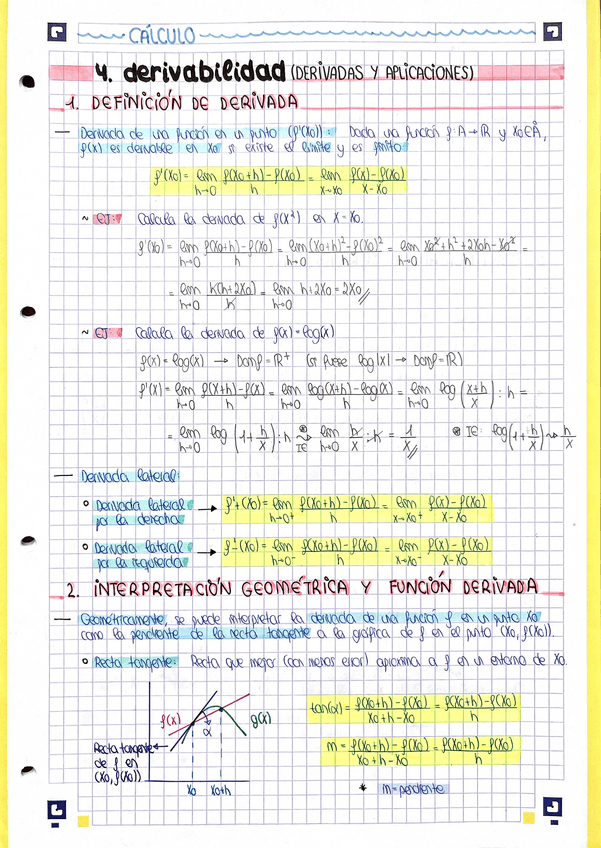 CÁLCULO
4. derivabilidad (DERIVADAS Y APLICACIONES)
1. DEFINICIÓN DE DERIVADA
— Derivada de una función en un punto (f'(x₀)): Dada una función f: A→ℝ y x₀∈Å,
f(x) es derivable en x₀ si existe el límite y es finito
f'(x₀) = lim h→0 (f(x₀+h)-f(x₀))/h = lim x→x₀ (f(x)-f(x₀))/(x-x₀)
~ EJ: Calcula la derivada de f(x²) en x=x₀.
f'(x₀) = lim h→0 (f(x₀+h)-f(x₀))/h = lim h→0 ((x₀+h)²-f(x₀)²)/h = lim h→0 (x₀²+h²+2x₀h-x₀²)/h =
= lim h→0 h(h+2x₀)/h = lim h→0 h+2x₀ = 2x₀//
~ EJ: Calcula la derivada de f(x)=log(x)
f(x) = log(x) → Domf = ℝ⁺ (si fuese log|x| → Domf = ℝ)
f'(x) = lim h→0 (f(x+h)-f(x))/h = lim h→0 (log(x+h)-log(x))/h = lim h→0 log((x+h)/x) : h =
= lim h→0 log(1+h/x) : h ⊛ ⤳ IE lim h→0 h/x : h = 1/x// ⊛ IE: log(1+h/x) ⤳ h/x
— Derivada lateral:
° Derivada lateral por la derecha → f'+(x₀) = lim h→0⁺ (f(x₀+h)-f(x₀))/h = lim x→x₀⁺ (f(x)-f(x₀))/(x-x₀)
° Derivada lateral por la izquierda → f'-(x₀) = lim h→0⁻ (f(x₀+h)-f(x₀))/h = lim x→x₀⁻ (f(x)-f(x₀))/(x-x₀)
2. INTERPRETACIÓN GEOMÉTRICA Y FUNCIÓN DERIVADA
— Geométricamente, se puede interpretar la derivada de una función f en un punto x₀
como la pendiente de la recta tangente a la gráfica de f en el punto (x₀, f(x₀)).
° Recta tangente: Recta que mejor (con menos error) aproxima a f en un entorno de x₀.
f(x) α g(x)
Recta tangente
de f en
(x₀, f(x₀))
x₀ x₀+h
tan(α) = (f(x₀+h)-f(x₀))/(x₀+h-x₀) = (f(x₀+h)-f(x₀))/h
m = (f(x₀+h)-f(x₀))/(x₀+h-x₀) = (f(x₀+h)-f(x₀))/h
* m=pendiente